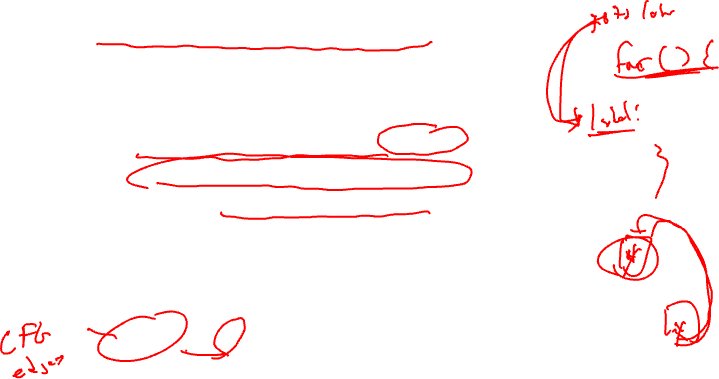 goto label
for () {
label:
}
CFG
edges